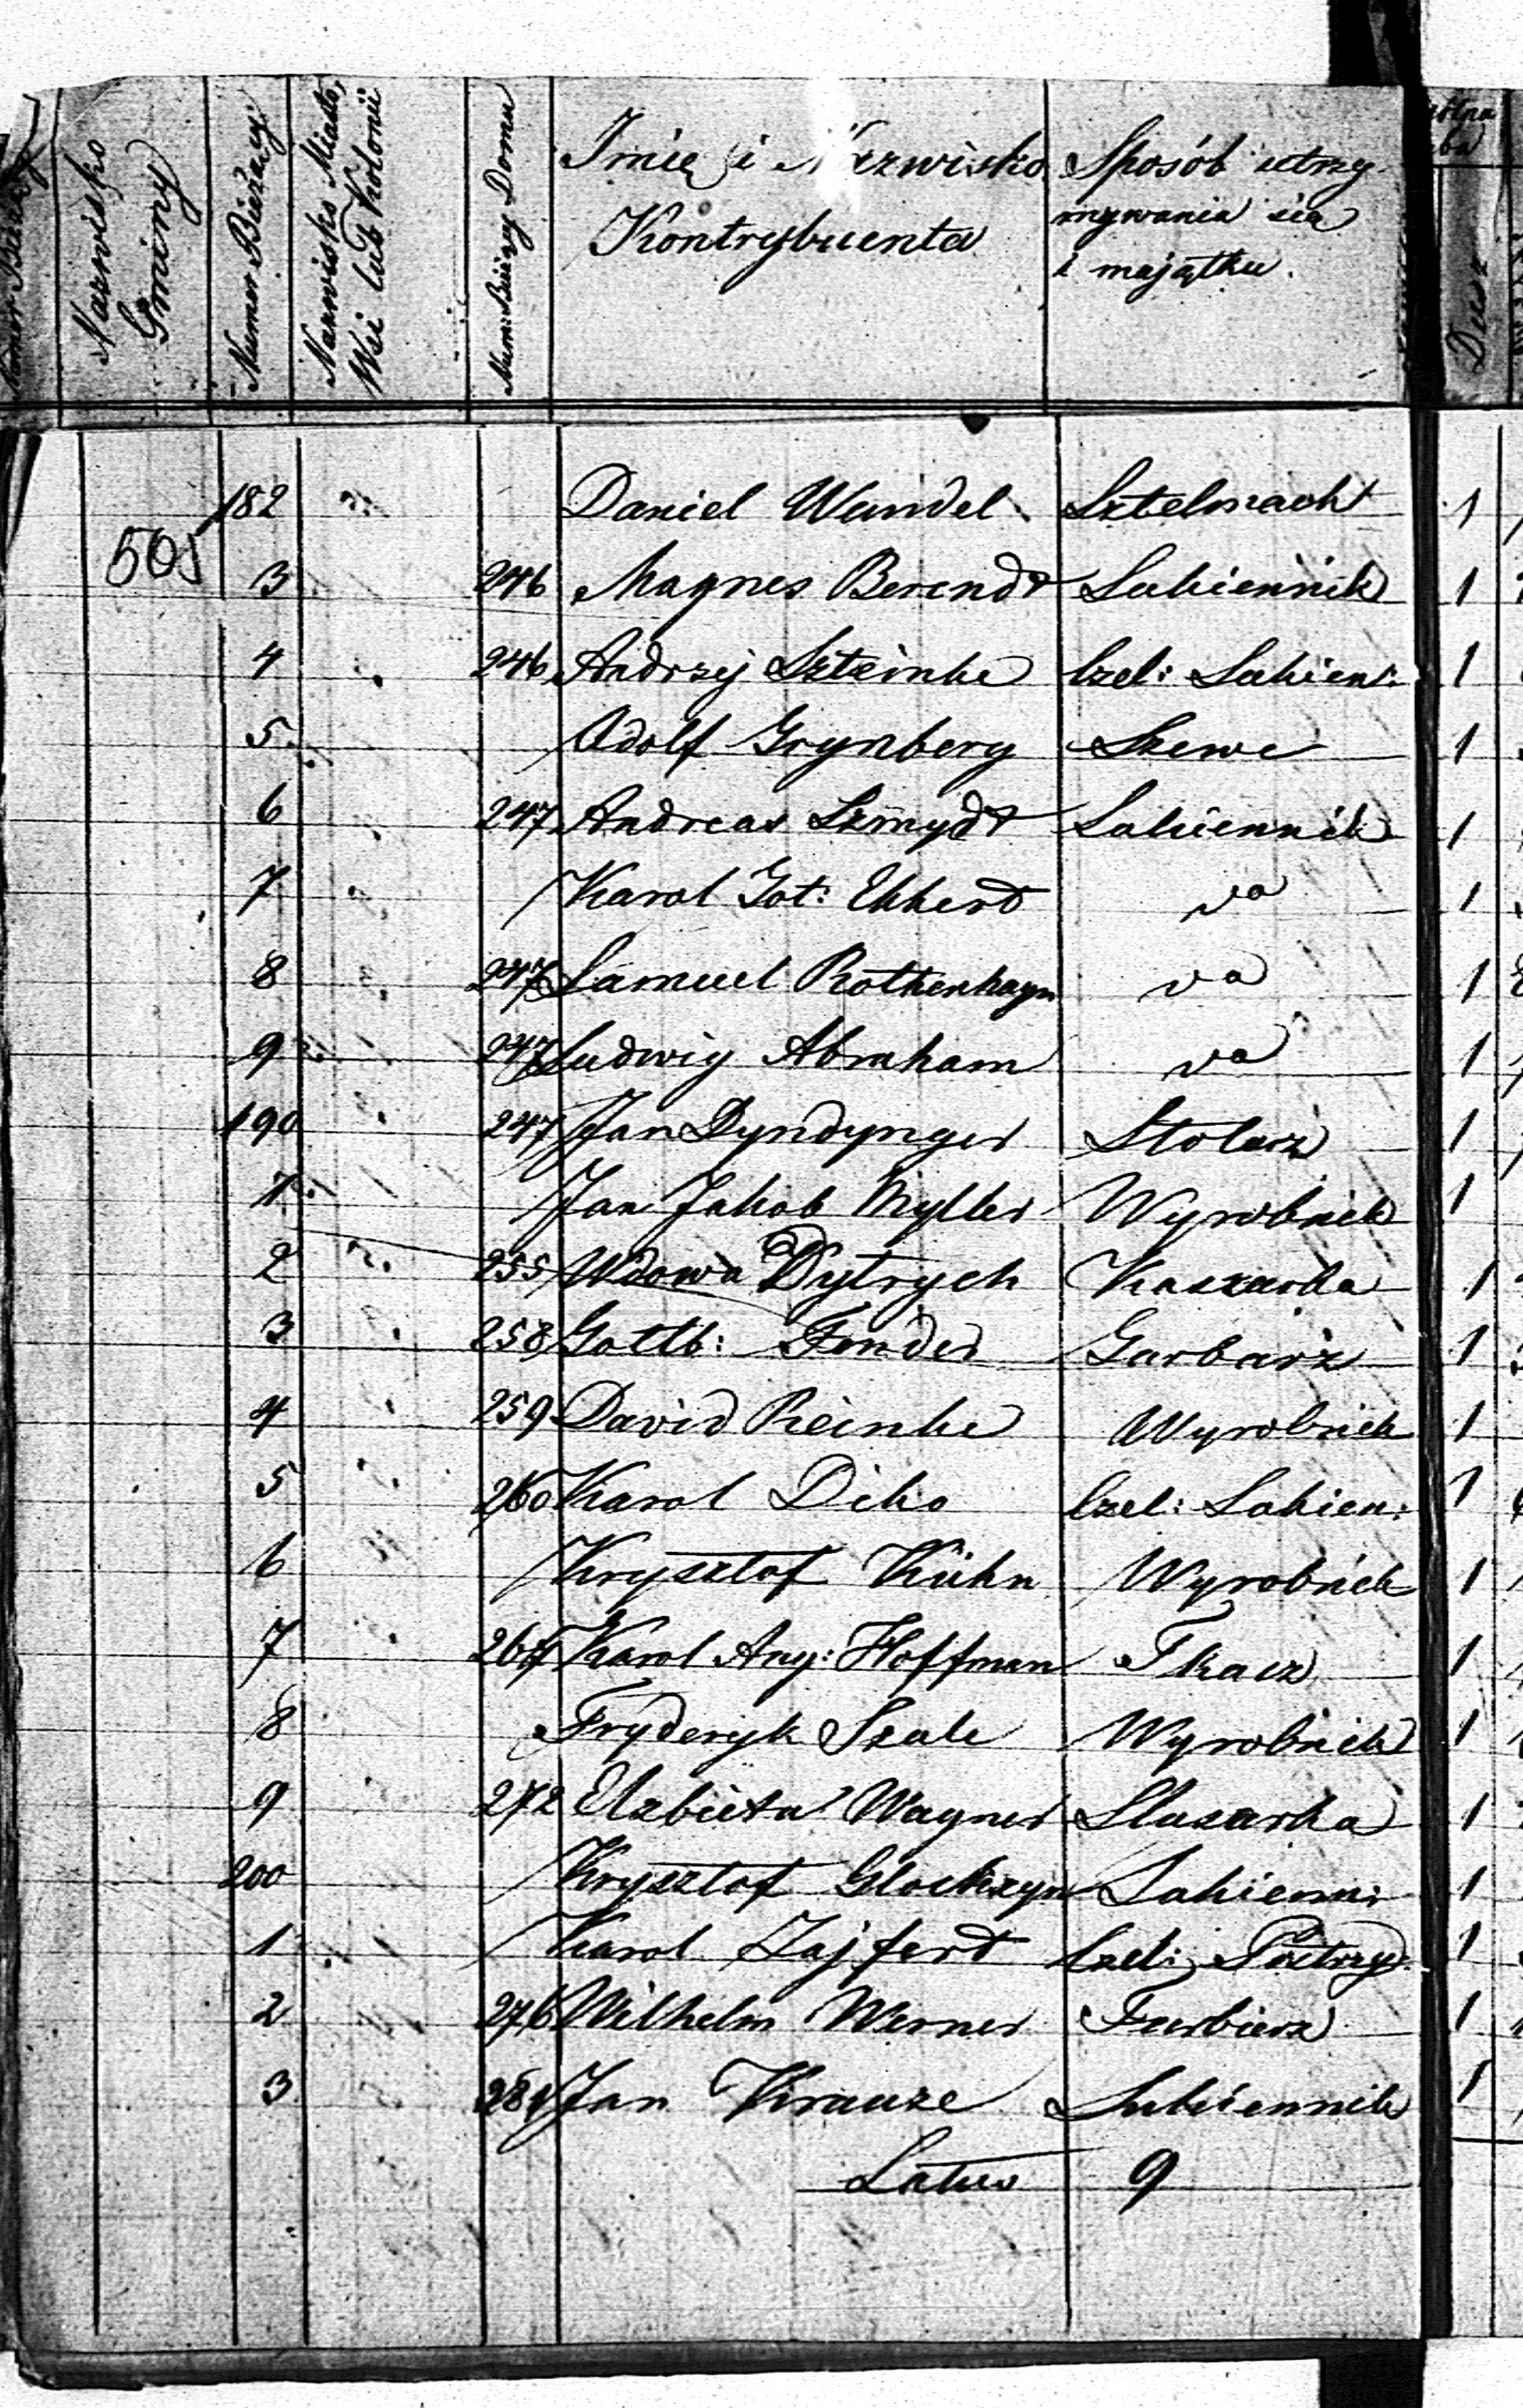 Nazwisko Gminy
Numer Bieżący
Nazwisko Miasta, Wsi lub Kolonii
Num: Bieżący Domu
Imię i Nazwisko Kontrybuenta
Sposób utrzymywania się i majątku.
505
182 " Daniel Wandel Sztelmach 1
3 246 Magnes Berendt Sukiennik 1
4 " 246 Andrzej Szteinke Czel: Sukien: 1
5 " Adolf Grynberg Szewc 1
6 " 247 Andreas Szmydt Sukiennik 1
7 " Karol Got: Ekkert va 1
8 " 247 Samuel Rothenhagn va 1
9 " 247 Ludwig Abraham va 1
190 " 247 Jan Dyndynger Stolarz 1
1 " Jan Jakob Myller Wyrobnik 1
2 " 255 Wdowa Dytrych Kaszarka 1
3 " 258 Gottb: Fender Garbarz 1
4 " 259 David Reinke Wyrobnik 1
5 " 260 Karol Diko Czel: Sukien: 1
6 " Krysztof Kühn Wyrobnik 1
7 " 267 Karol Aug: Hoffman Tkacz 1
8 Fryderyk Szulc Wyrobnik 1
9 " 272 Elzbieta Wagner Sluzarka 1
200 Krysztof Glockzyn Sukienn: 1
1 " Karol Zajfert Czel: Postrzy: 1
2 276 Wilhelm Werner Farbierz 1
3 281 Jan Krauze Sukiennik 1
Latus 9